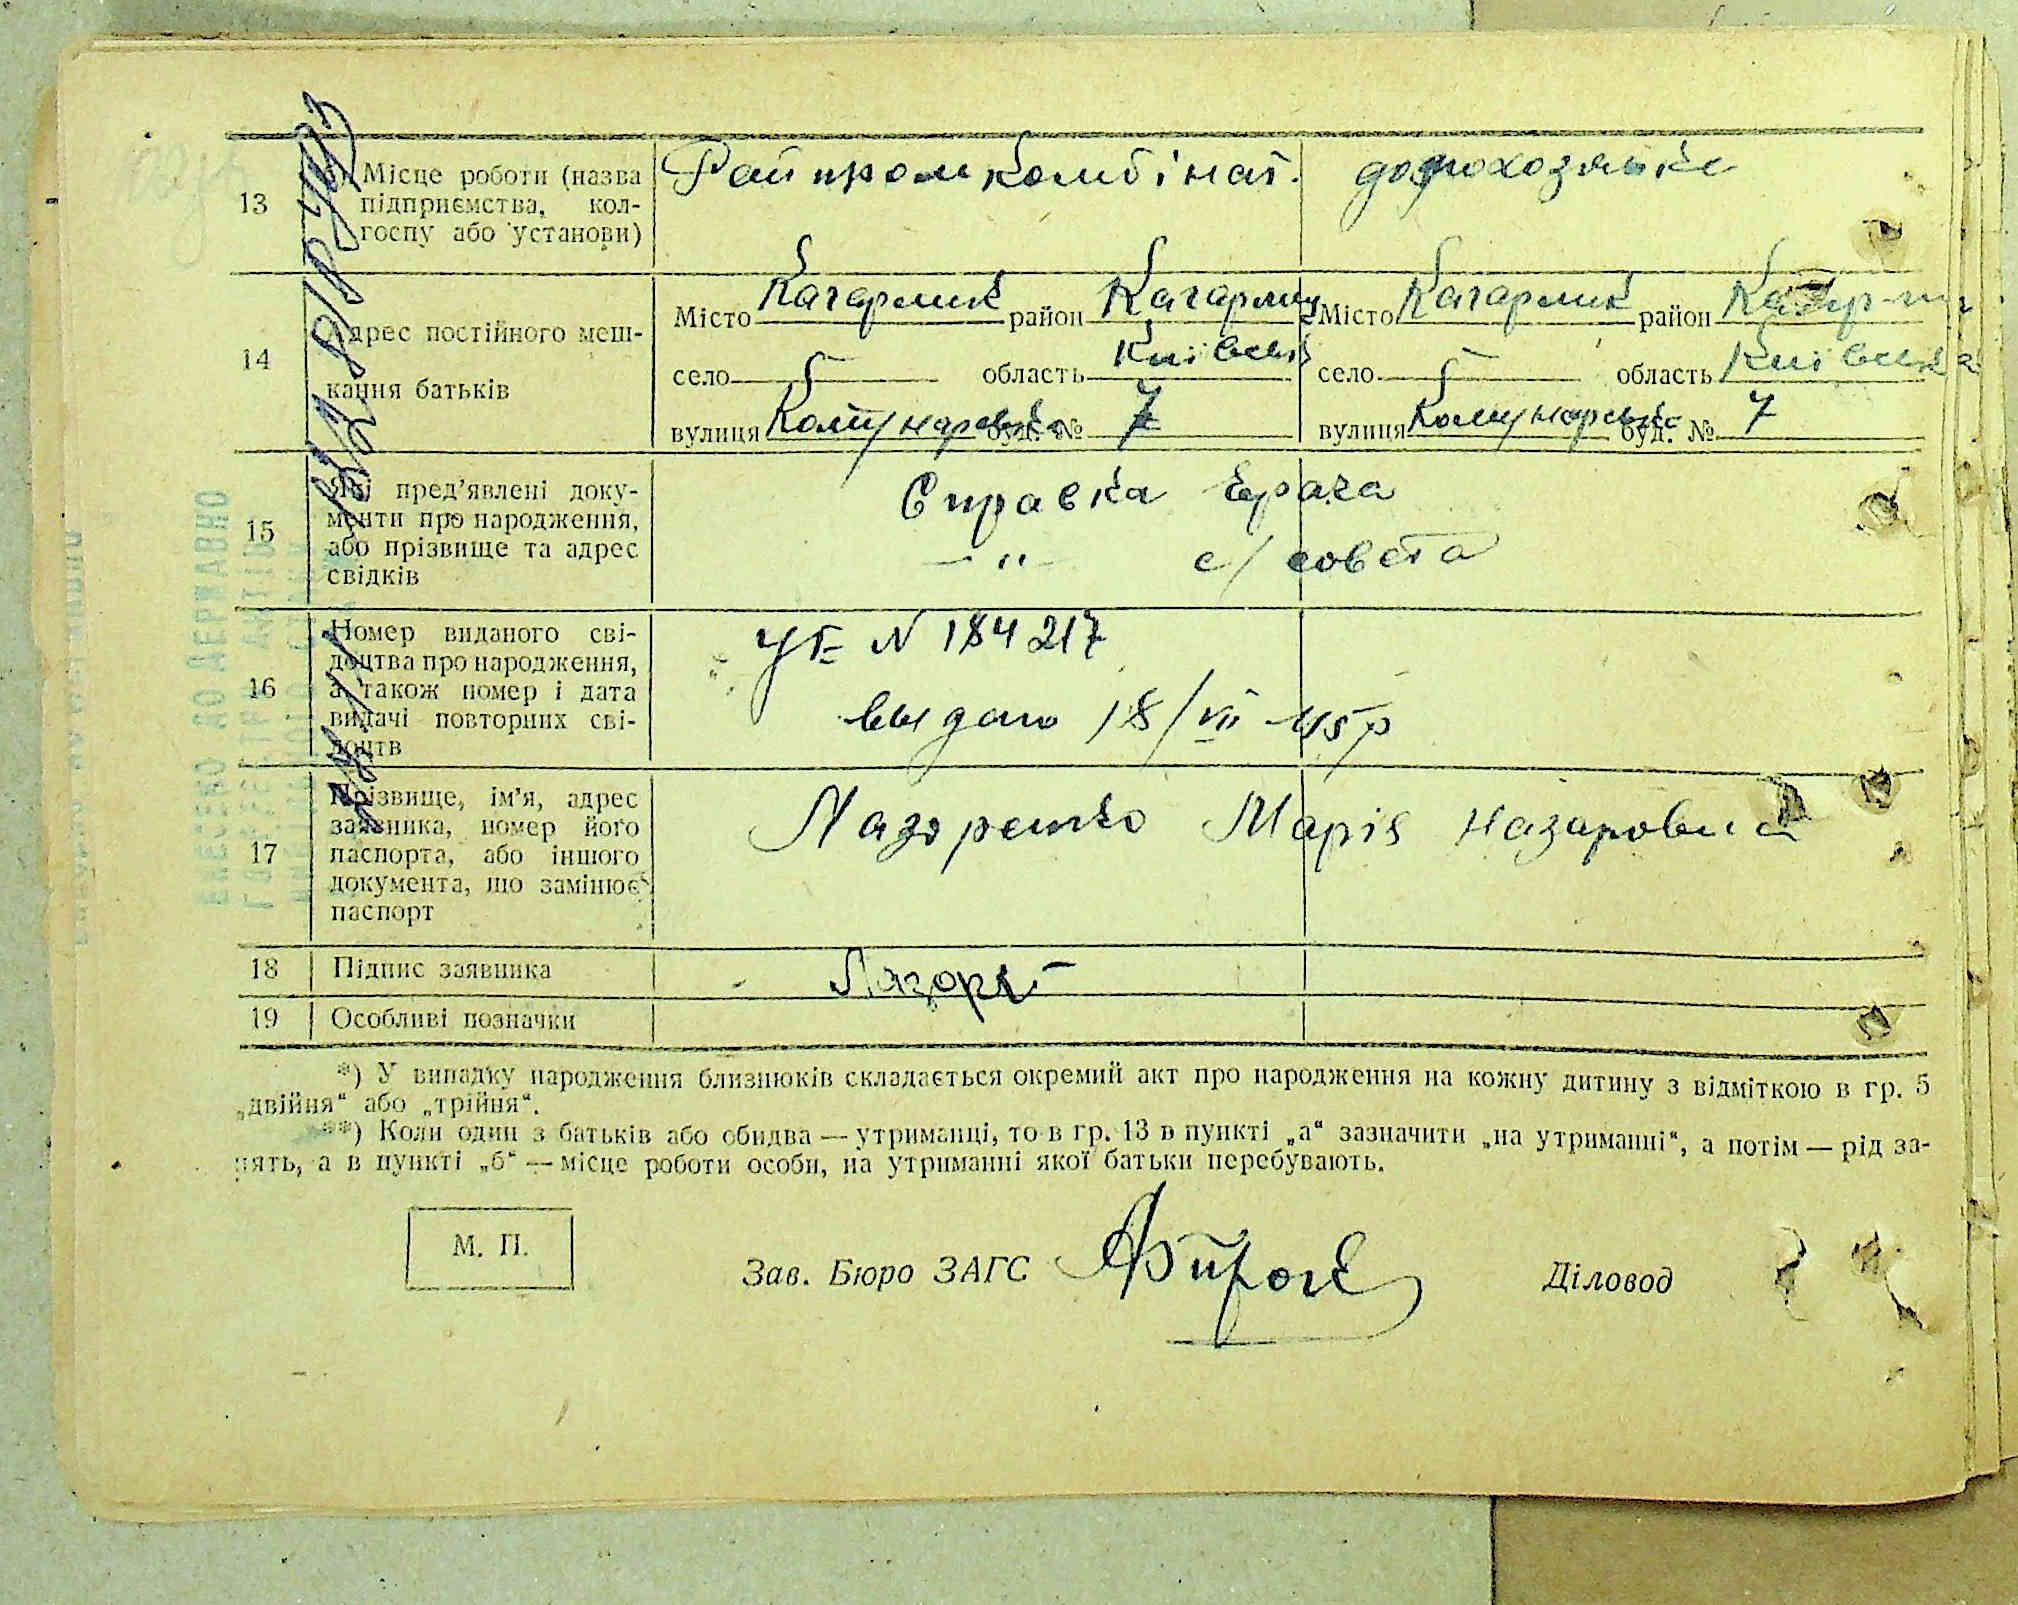 13 Місце роботи (назва Райпромкомбінат. домохозяйка
підприємства, кол-
госпу або установи)
Місто Кагарлик район Кагарлиц Місто Кагарлик район
14 Адрес постійного меш-
село — область Київськ село — область Київська
кання батьків
вулиця Комунарська буд. № 7 вулиця Комунарська буд. № 7
Які пред’явлені доку- Справка врача
15 менти про народження,
або прізвище та адрес — " — с/совета
свідків
Номер виданого сві- УБ N 184217
доцтва про народження,
16 а також номер і дата
видачі повторних сві- выдано 18/VII-45р
доцтв
Прізвище, ім’я, адрес
заявника, номер його Лазоренко Марія Назаровна
17 паспорта, або іншого
документа, що замінює
паспорт
18 Підпис заявника Лазоре
19 Особливі позначки
*) У випадку народження близнюків складається окремий акт про народження на кожну дитину з відміткою в гр. 5
„двійня“ або „трійня“.
**) Коли один з батьків або обидва — утриманці, то в гр. 13 в пункті „а“ зазначити „на утриманні“, а потім — рід за-
нять, а в пункті „б“ — місце роботи особи, на утриманні якої батьки перебувають.
М. П.
Зав. Бюро ЗАГС Діловод